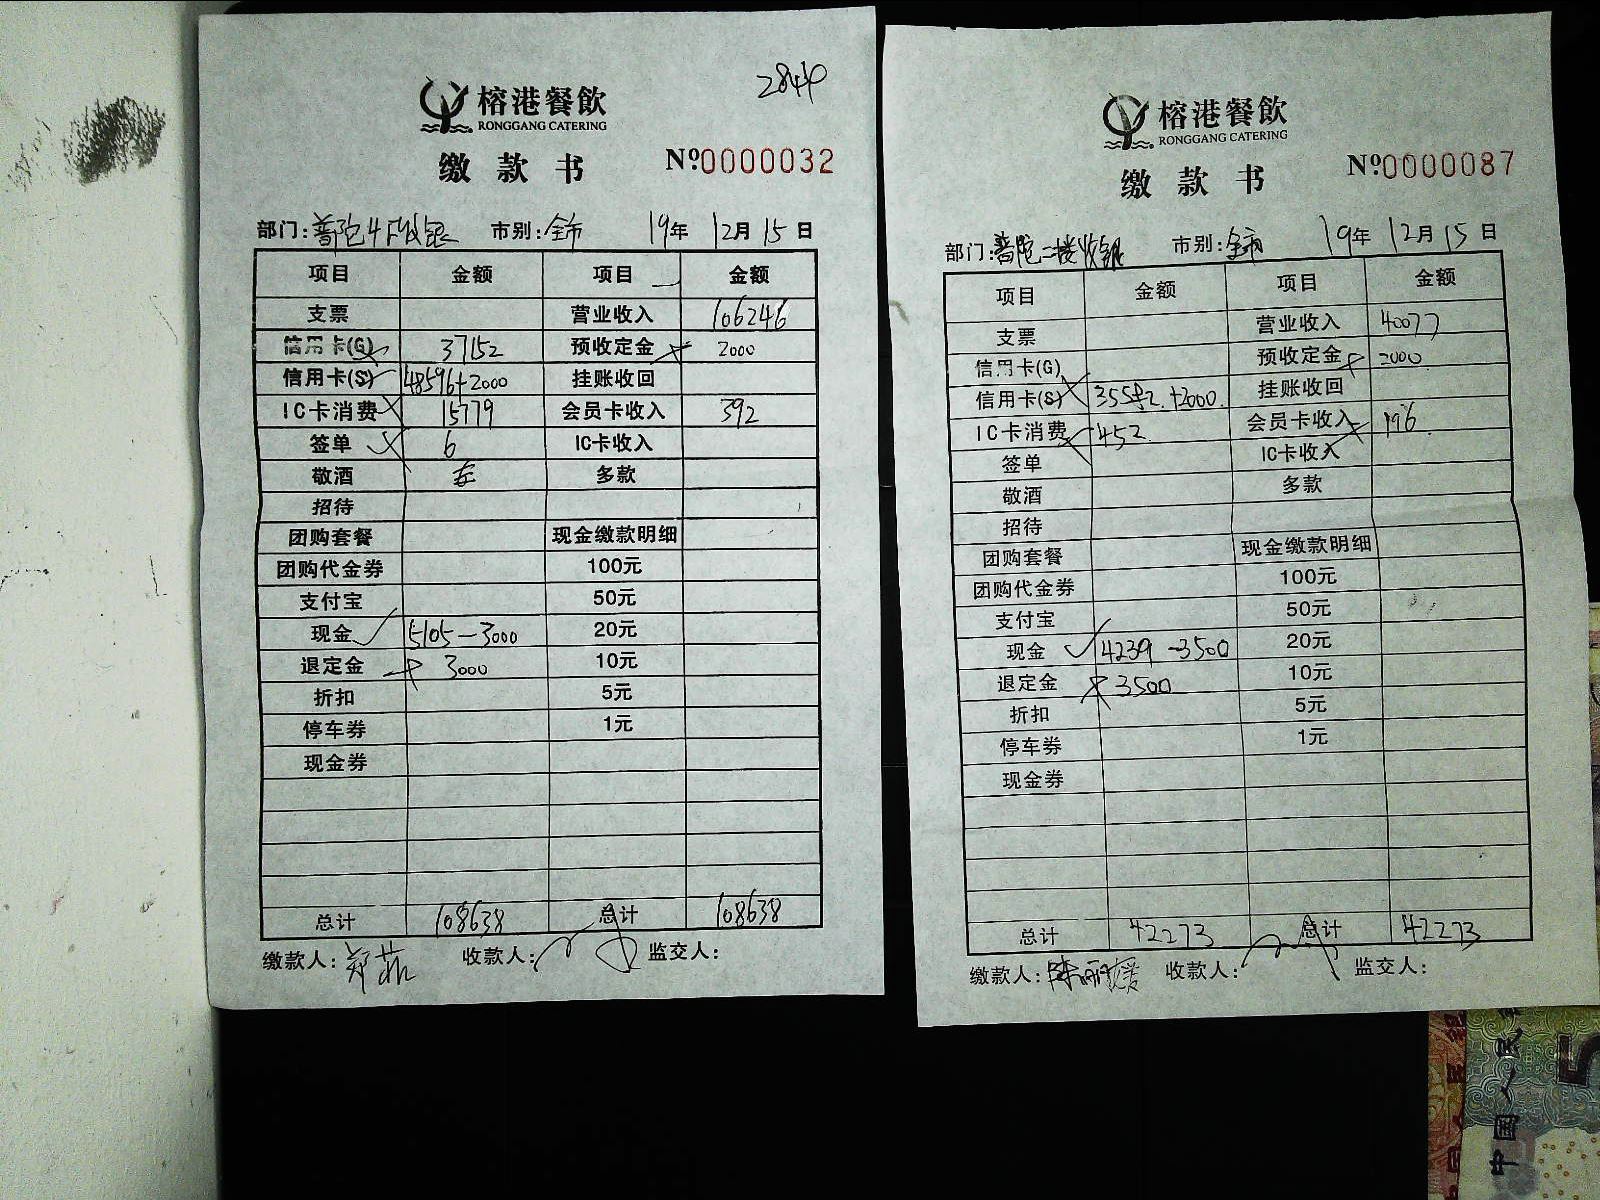 2844
榕港餐飲
RONGGANG CATERING
缴款书 №0000032
部门:普陀4F收银 市别:全市 19年 12月 15日
项目 金额 项目 金额
支票 营业收入 106246
信用卡(G) 37152 预收定金 2000
信用卡(S) 48596+2000 挂账收回
IC卡消费 15779 会员卡收入 392
签单 6 IC卡收入
敬酒 多款
招待
团购套餐 现金缴款明细
团购代金券 100元
支付宝 50元
现金 5105-3000 20元
退定金 3000 10元
折扣 5元
停车券 1元
现金券
总计 108638 总计 108638
缴款人: 收款人: 监交人:
榕港餐飲
RONGGANG CATERING
缴款书 №0000087
部门:普陀二楼收银 市别:全市 19年 12月 15日
项目 金额 项目 金额
支票 营业收入 40077
信用卡(G) 预收定金 2000
信用卡(S) 35582+2000 挂账收回
IC卡消费 452 会员卡收入 196
签单 IC卡收入
敬酒 多款
招待
团购套餐 现金缴款明细
团购代金券 100元
支付宝 50元
现金 4239-3500 20元
退定金 3500 10元
折扣 5元
停车券 1元
现金券
总计 42273 总计 42273
缴款人: 收款人: 监交人:
中国人民
5